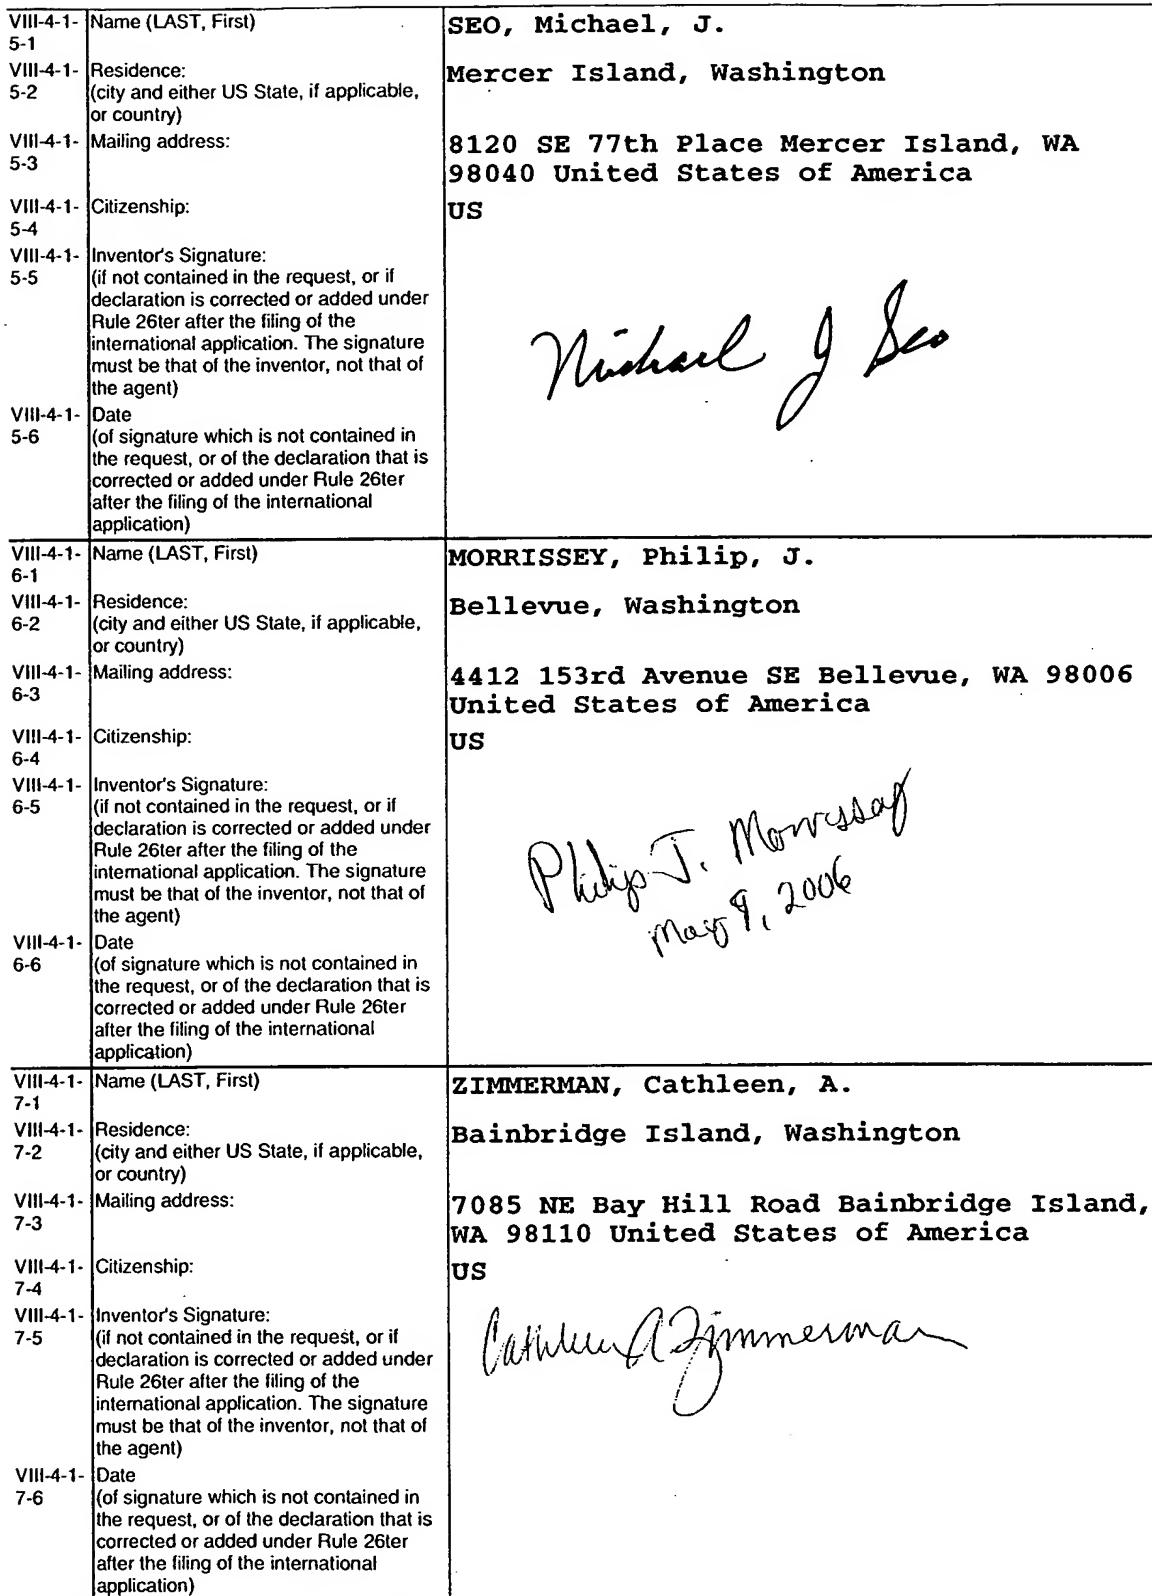 VIII-4-1- Name (LAST, First) SEO, Michael, J.
5-1
VIII-4-1- Residence: Mercer Island, Washington
5-2 (city and either US State, if applicable,
or country)
VIII-4-1- Mailing address: 8120 SE 77th Place Mercer Island, WA
5-3 98040 United States of America
VIII-4-1- Citizenship: US
5-4
VIII-4-1- Inventor's Signature:
5-5 (if not contained in the request, or if
declaration is corrected or added under
Rule 26ter after the filing of the
international application. The signature
must be that of the inventor, not that of
the agent)
Michael J Seo
VIII-4-1- Date
5-6 (of signature which is not contained in
the request, or of the declaration that is
corrected or added under Rule 26ter
after the filing of the international
application)
VIII-4-1- Name (LAST, First) MORRISSEY, Philip, J.
6-1
VIII-4-1- Residence: Bellevue, Washington
6-2 (city and either US State, if applicable,
or country)
VIII-4-1- Mailing address: 4412 153rd Avenue SE Bellevue, WA 98006
6-3 United States of America
VIII-4-1- Citizenship: US
6-4
VIII-4-1- Inventor's Signature:
6-5 (if not contained in the request, or if
declaration is corrected or added under
Rule 26ter after the filing of the
international application. The signature
must be that of the inventor, not that of
the agent)
Philip J. Morrissey
May 9, 2006
VIII-4-1- Date
6-6 (of signature which is not contained in
the request, or of the declaration that is
corrected or added under Rule 26ter
after the filing of the international
application)
VIII-4-1- Name (LAST, First) ZIMMERMAN, Cathleen, A.
7-1
VIII-4-1- Residence: Bainbridge Island, Washington
7-2 (city and either US State, if applicable,
or country)
VIII-4-1- Mailing address: 7085 NE Bay Hill Road Bainbridge Island,
7-3 WA 98110 United States of America
VIII-4-1- Citizenship: US
7-4
VIII-4-1- Inventor's Signature:
7-5 (if not contained in the request, or if
declaration is corrected or added under
Rule 26ter after the filing of the
international application. The signature
must be that of the inventor, not that of
the agent)
Cathleen A Zimmerman
VIII-4-1- Date
7-6 (of signature which is not contained in
the request, or of the declaration that is
corrected or added under Rule 26ter
after the filing of the international
application)